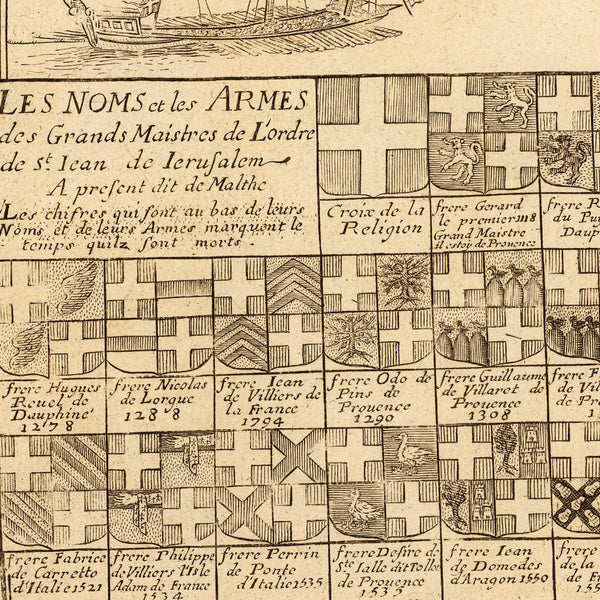 LES NOMS et les ARMES
des Grands Maistres de L'ordre
de St. Iean de Ierusalem
A present dit de Malthe
Les chifres qui sont au bas de leurs
Noms et de leurs Armes marquent le
temps quilz sont morts.
Croix de la
Religion
frere Gerard
le premier 1118
Grand Maistre
il estoy de Provence
frere R
du Pui
Dauph
frere Hugues
Revel de
Dauphiné
1278
frere Nicolas
de Lorgue
1288
frere Iean
de Villiers de
la France
1794
frere Odo de
Pins de
Provence
1290
frere Guillaume
de Villaret de
Provence
1308
frere F
de Vill
de Pr
1
frere Fabrice
de Carretto
d'Italie 1521
frere Philippe
de Villiers L'Isle
Adam de France
1534
frere Perrin
de Ponte
d'Italie 1535
frere Desire de
Ste Ialle dit Tollon
de Provence
1535
frere Iean
de Domedes
d'Aragon 1550
frere
de la
de F
1